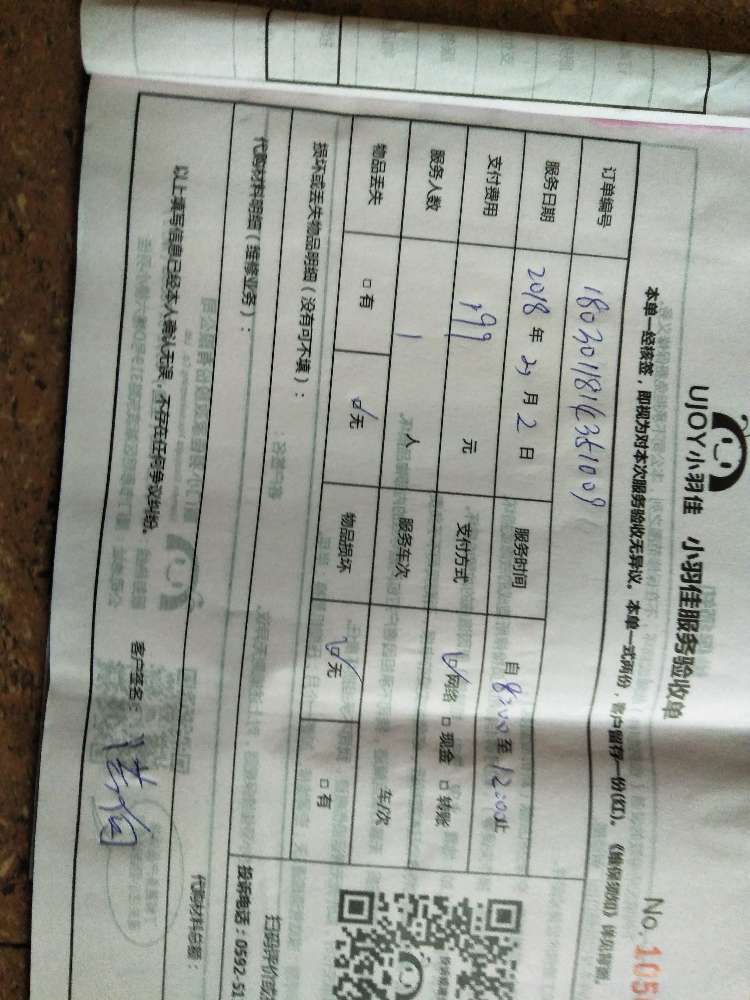 UJOY小羽佳 小羽佳服务验收单
No.105
本单一经核签，即视为对本次服务验收无异议。本单一式两份，客户留存一份(红)。《维保须知》详见背面。
订单编号 1803011816351009
服务日期 2018 年 月 2 日 服务时间 自 8:00 至 12:00 止
支付费用 199 元 支付方式 ☑网络 □现金 □转账
服务人数 1 人 服务车次 车/次
物品丢失 □有 ☑无 物品损坏 ☑无 □有
损坏或丢失物品明细（没有可不填）：
代购材料明细（维修业务）： 代购材料总额：
以上填写信息已经本人确认无误，不存在任何争议纠纷。 客户签名：
投诉电话：0592-51